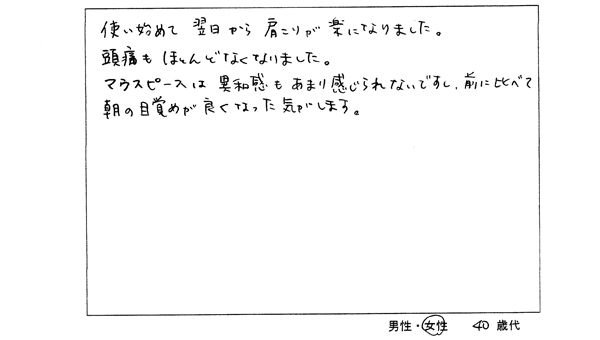 使い始めて 翌日から 肩こりが 楽になりました。
頭痛も ほとんどなくなりました。
マウスピースは 異和感も あまり感じられないですし、前に比べて
朝の目覚めが 良くなった 気がします。
男性・女性 40 歳代